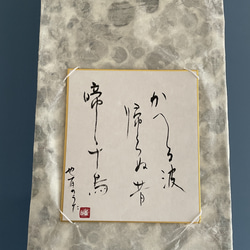 かへる波
帰らぬ昔
啼く千鳥